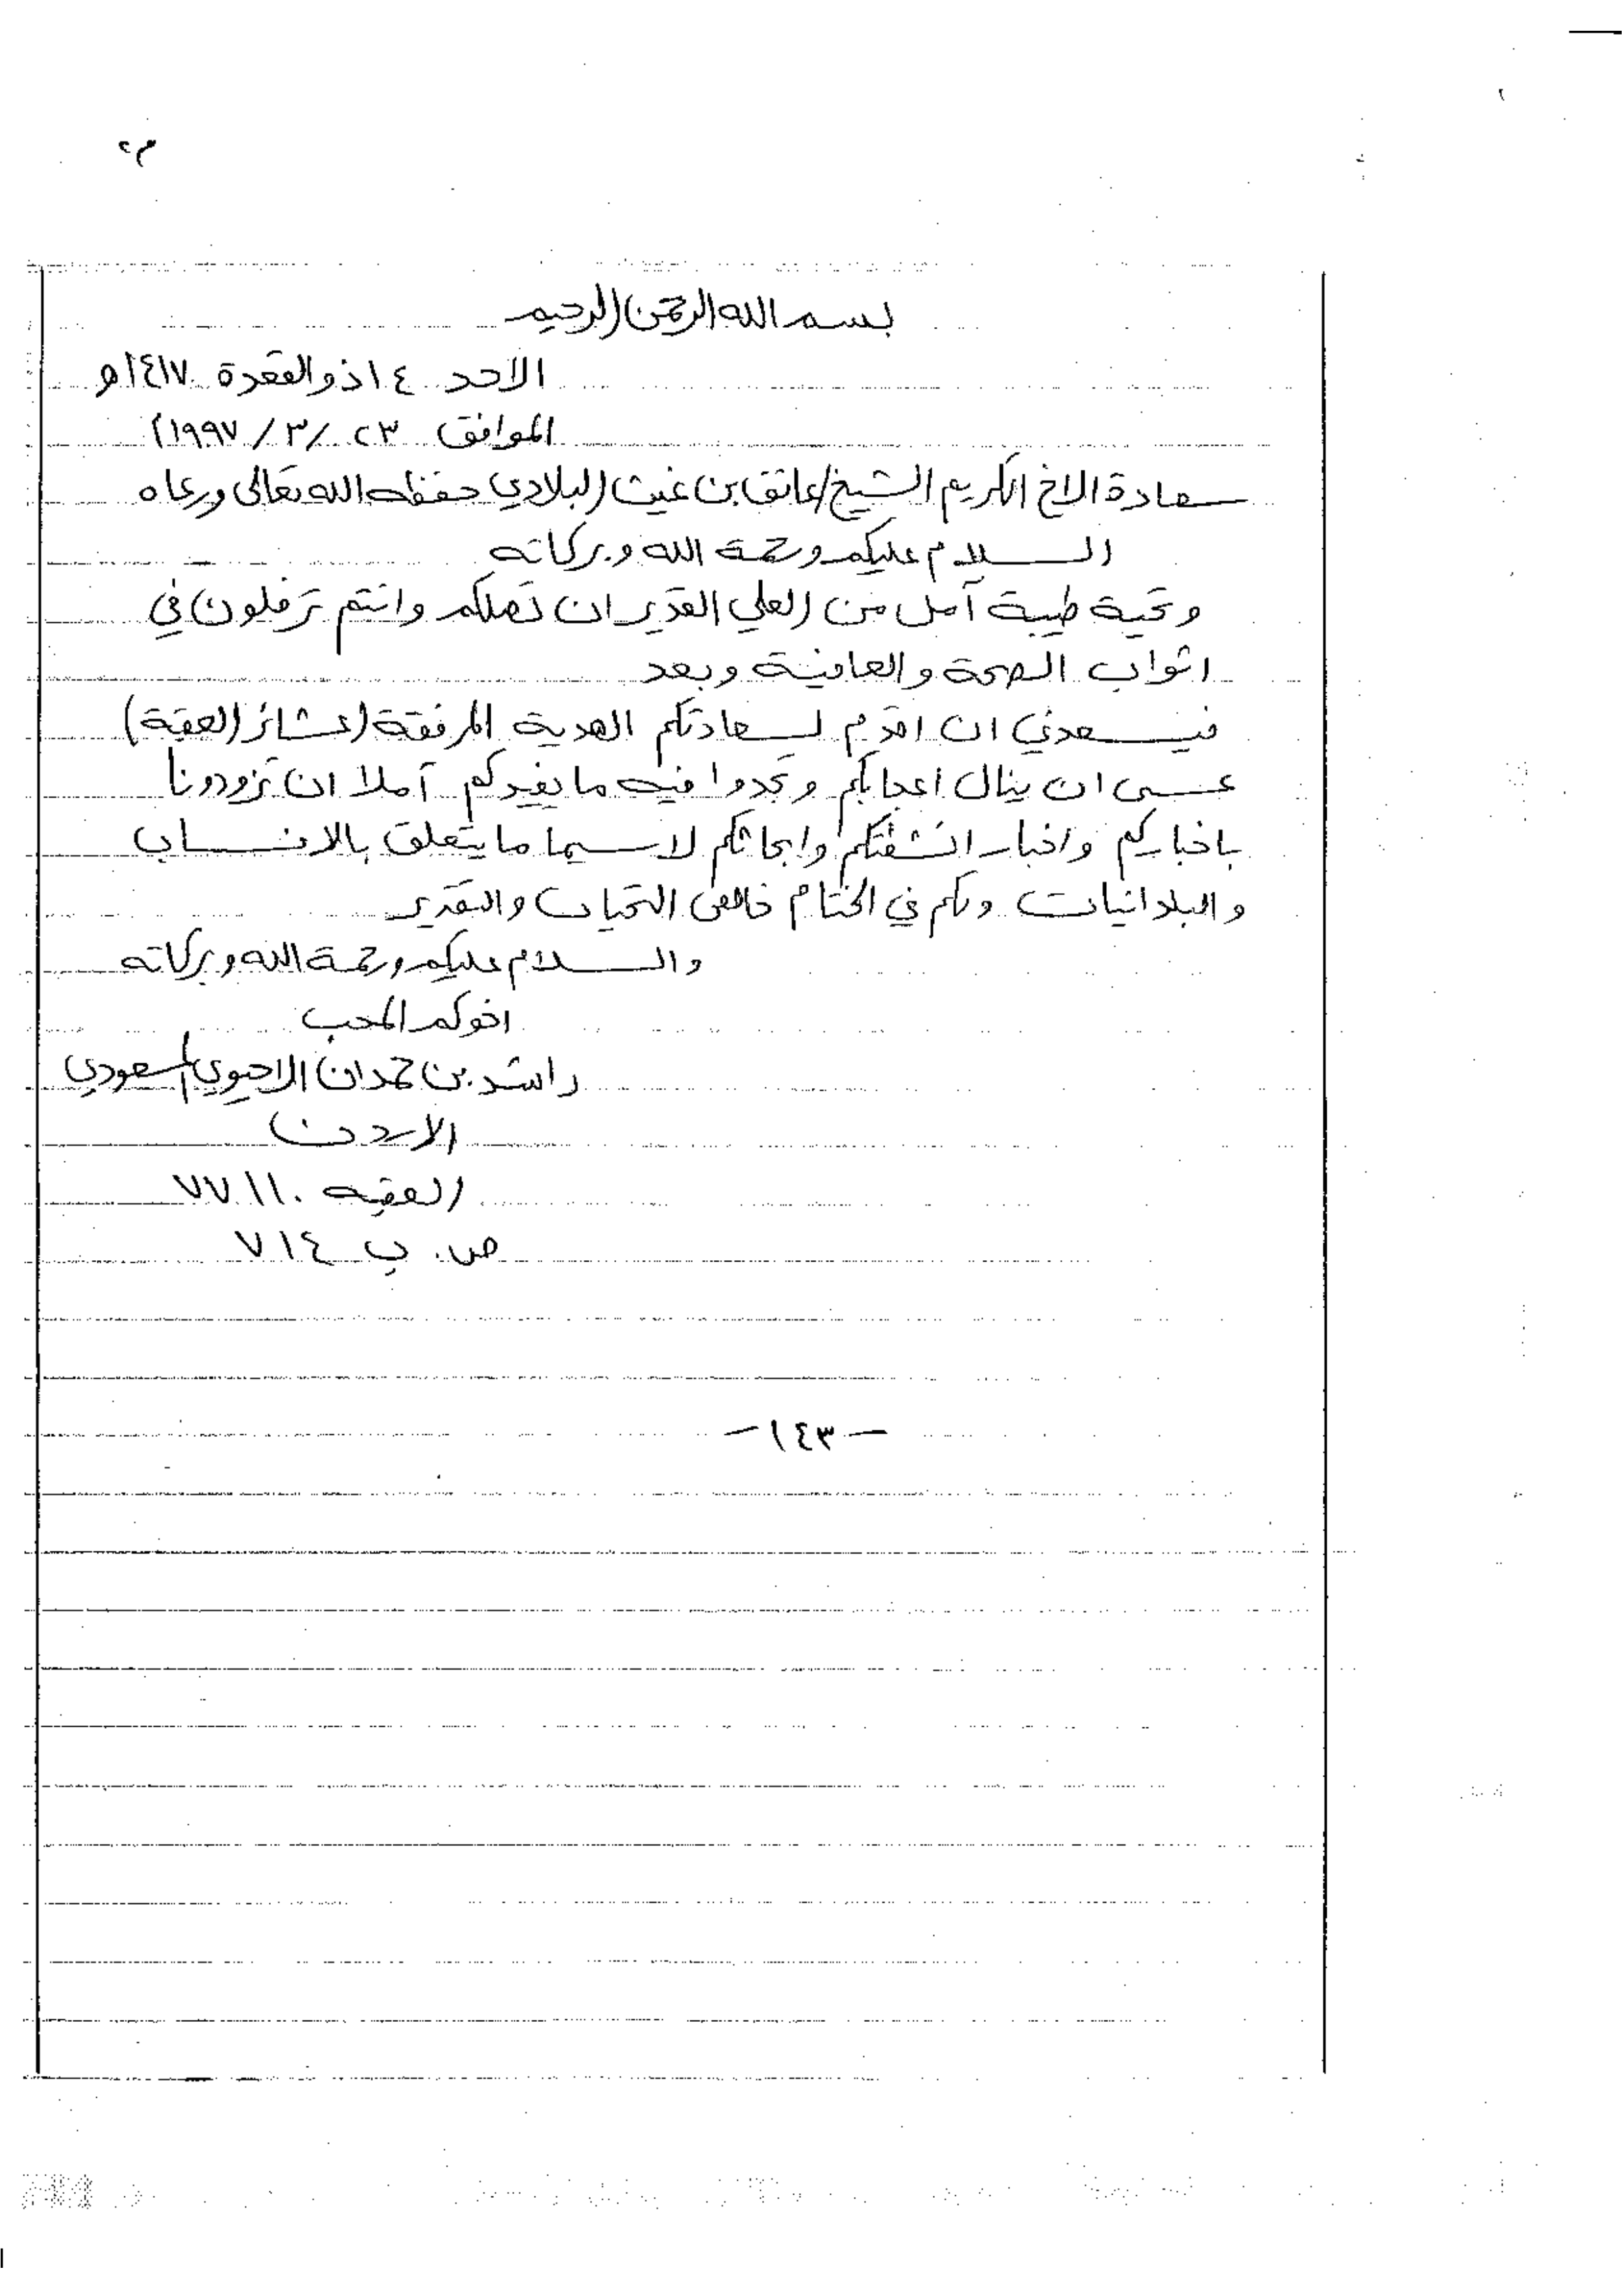 م٢
بسم الله الرحمن الرحيم
الاحد ١٤ ذو القعدة ١٤١٧ه
الموافق ٢٣ / ٣ / ١٩٩٧م
سعادة الاخ الكريم الشيخ/عاتق بن غيث البلادي حفظه الله تعالى ورعاه
السلام عليكم ورحمة الله وبركاته
وتحية طيبة آمل من العلي القدير ان تصلكم وانتم ترفلون في
اثواب الصحة والعافية وبعد
فيسعدني ان اقدم لسعادتكم الهدية المرفقة (عشائر العقبة)
عسى ان ينال اعجابكم وتجدوا فيه ما يفيدكم آملا ان تزودونا
باخباركم واخبار انشطتكم وابحاثكم لاسيما ما يتعلق بالانساب
والبلدانيات ولكم في الختام خالص التحيات والتقدير
والسلام عليكم ورحمة الله وبركاته
اخوكم المحب
راشد بن حمدان الاحيوي المسعودي
الاردن
العقبه ٧٧١١٠
ص. ب ٧١٤
- ١٤٣ -